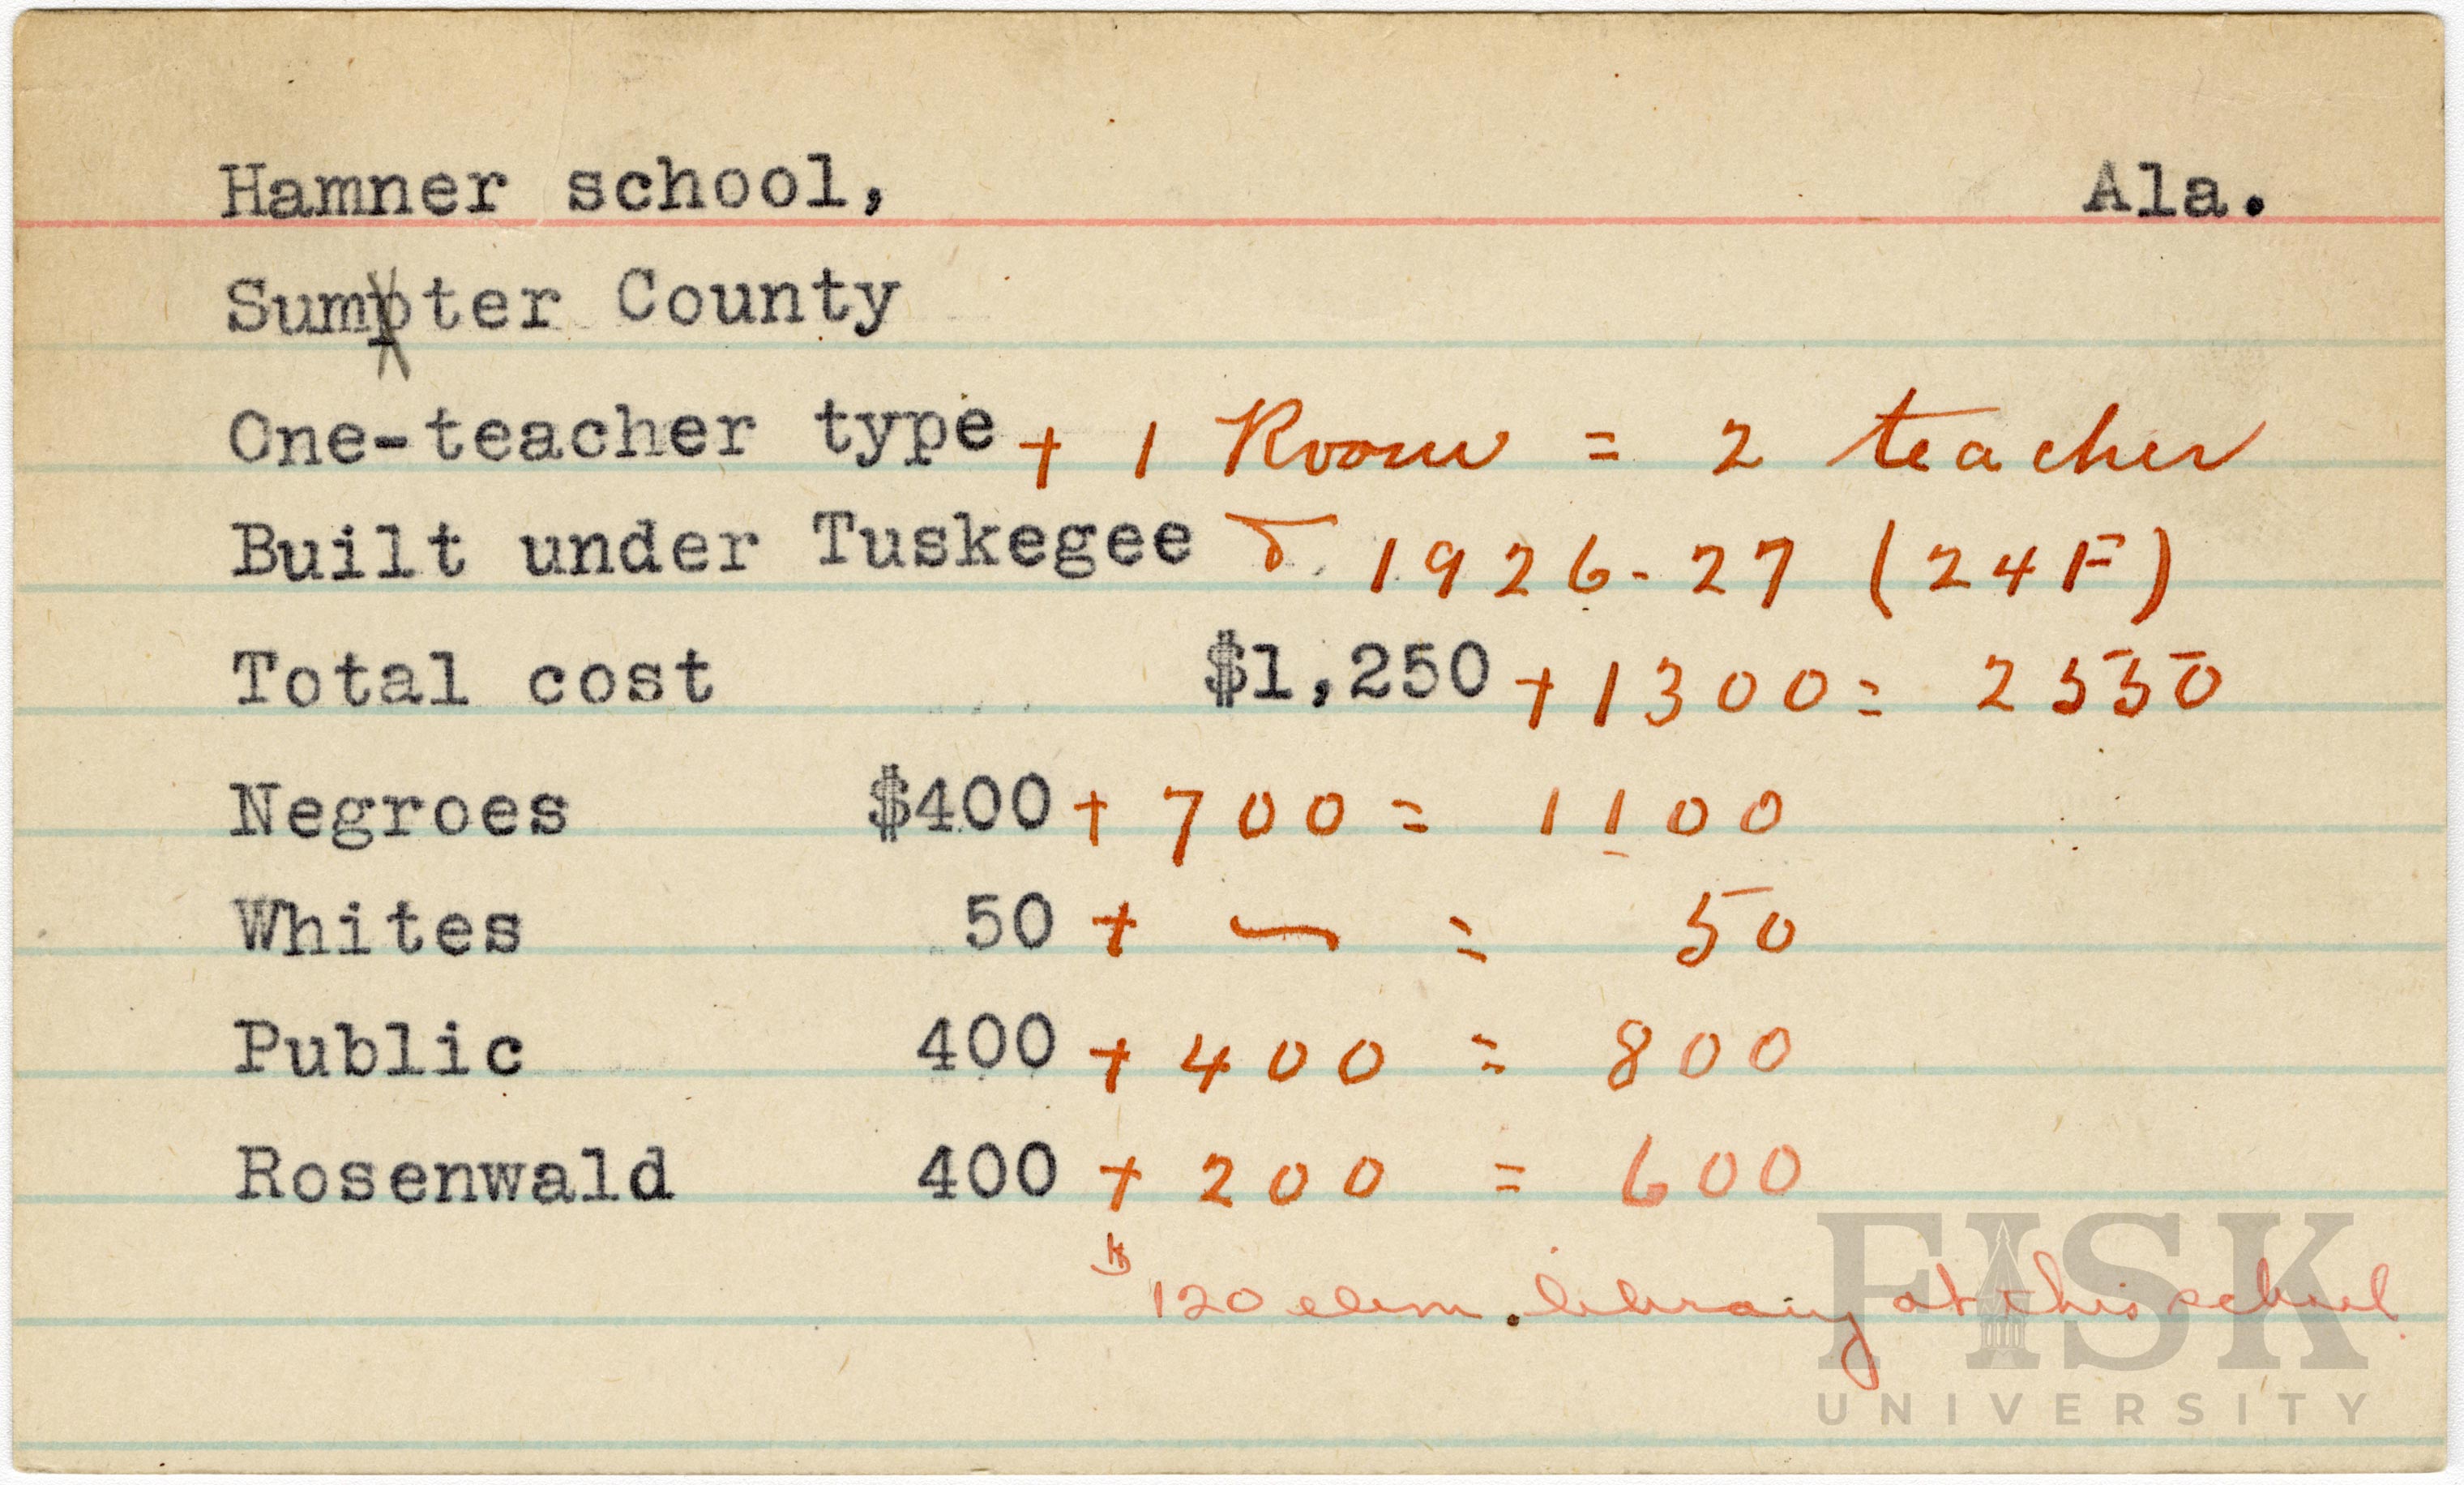 Hamner school, Ala.
Sumpter County
One-teacher type + 1 Room = 2 teacher
Built under Tuskegee & 1926-27 (24F)
Total cost $1,250 + 1300 = 2550
Negroes $400 + 700 = 1100
Whites 50 + — = 50
Public 400 + 400 = 800
Rosenwald 400 + 200 = 600
$120 elem. library at this school.
FISK
UNIVERSITY